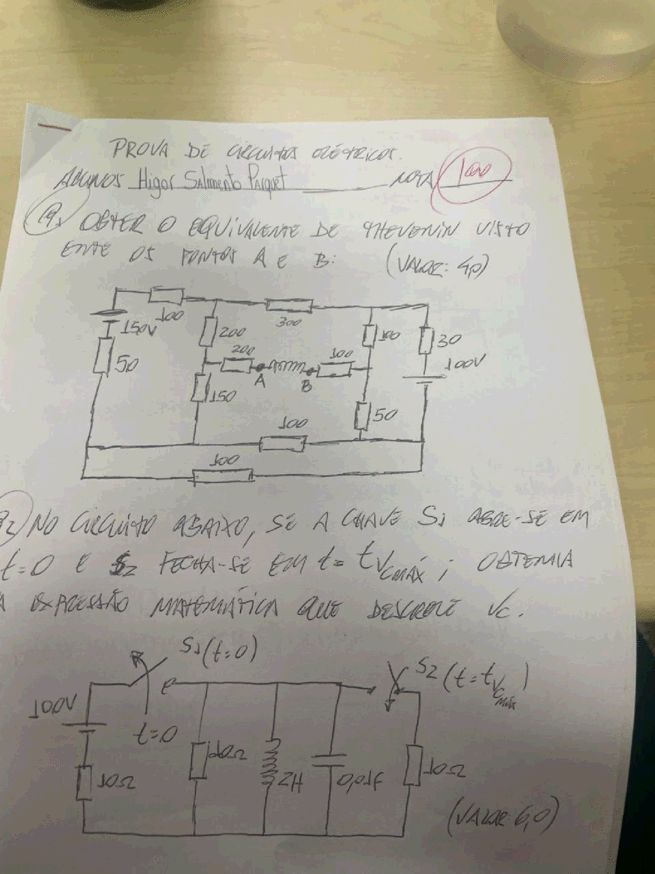 PROVA DE CIRCUITOS ELÉTRICOS.
ALUNOS Higor Salmento NOTA 10,0
1ª. OBTER O EQUIVALENTE DE THEVENIN VISTO
ENTE OS PONTOS A E B: (VALOR: 4p)
100 300
150V 200 100 30
200 100 100V
50 A B
150 50
100
100
2) NO CIRCUITO ABAIXO, SE A CHAVE S1 ABRE-SE EM
t=0 E S2 FECHA-SE EM t= tVCMÁX; OBTENHA
A EXPRESSÃO MATEMÁTICA QUE DESCREVE VC.
S1(t=0) S2 (t=tVCMÁX)
100V
t=0
10Ω 10Ω 2H 0,01F 10Ω
(VALOR 6,0)